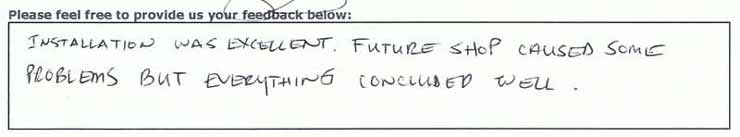 Please feel free to provide us your feedback below:
INSTALLATION WAS EXCELLENT. FUTURE SHOP CAUSED SOME
PROBLEMS BUT EVERYTHING CONCLUDED WELL.